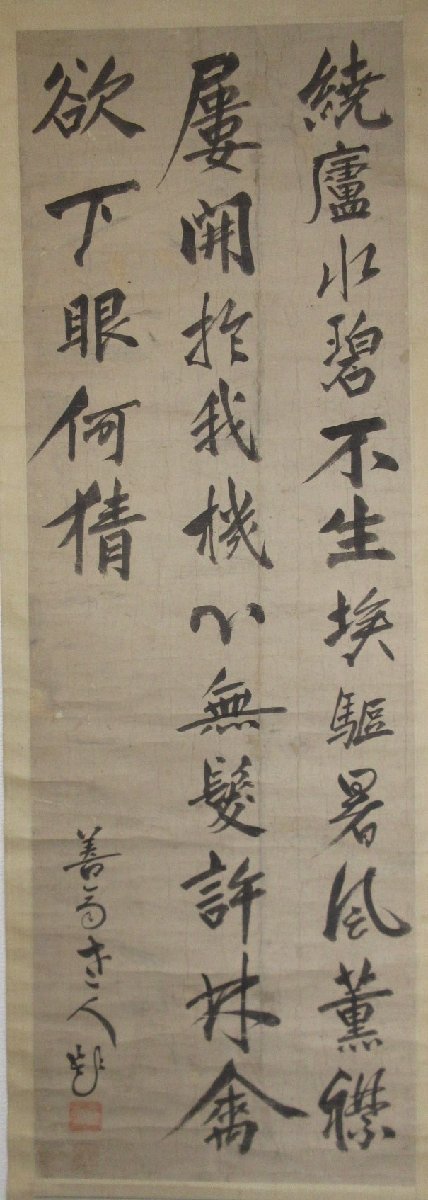 繞廬水碧不生埃驅暑風薰襟
屢開於我機心無髮許林禽
欲下眼何猜
善 老人